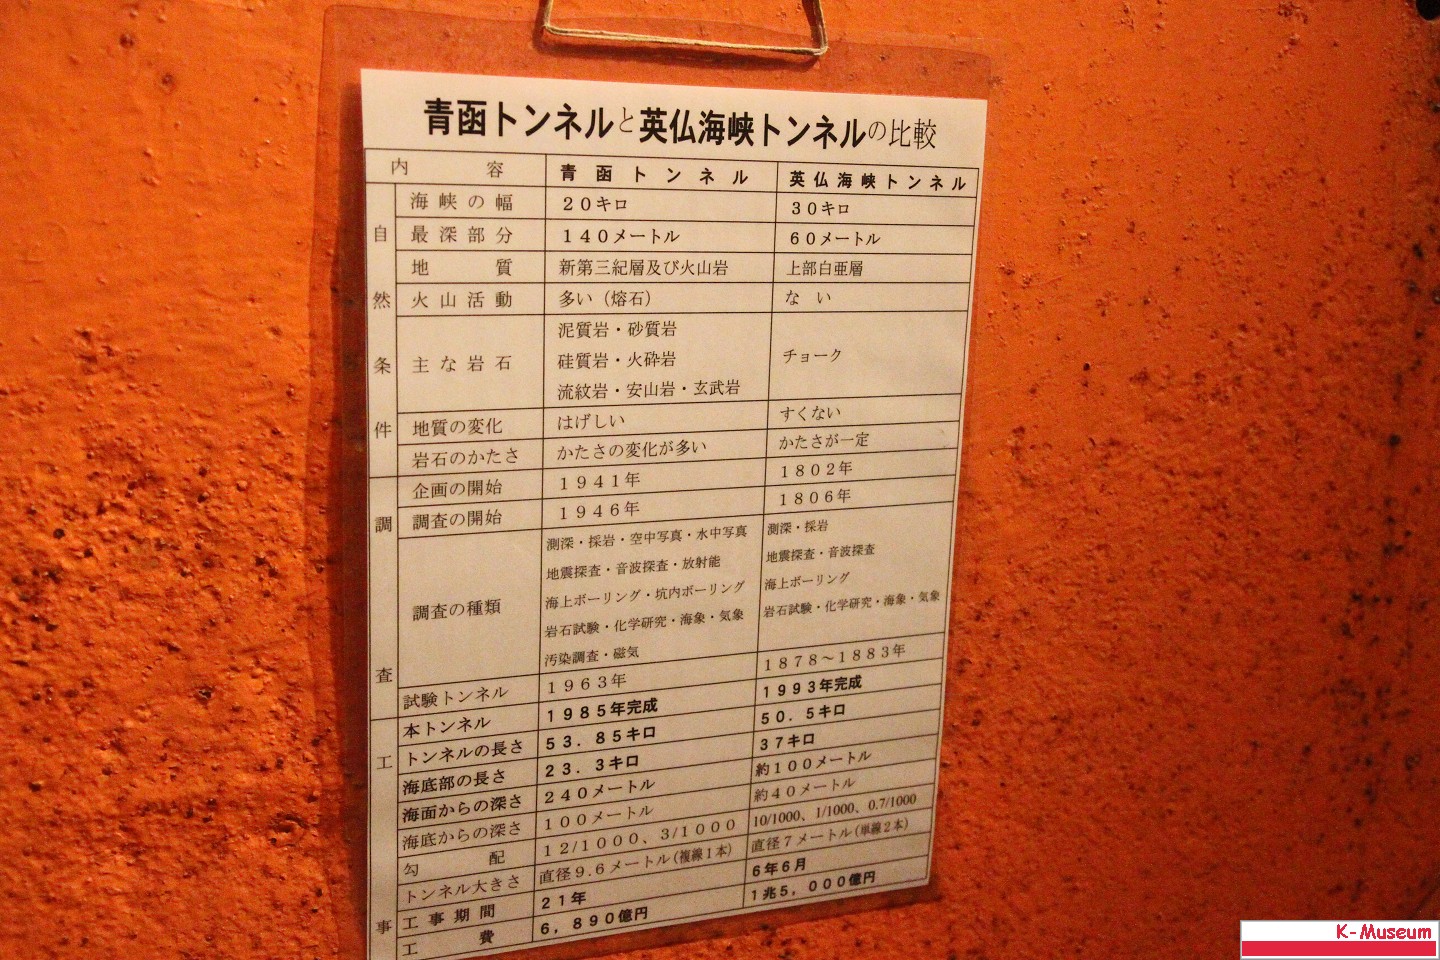 青函トンネルと英仏海峡トンネルの比較
内容 青函トンネル 英仏海峡トンネル
自然条件
海峡の幅 20キロ 30キロ
最深部分 140メートル 60メートル
地質 新第三紀層及び火山岩 上部白亜層
火山活動 多い（熔石） ない
主な岩石 泥質岩・砂質岩
硅質岩・火砕岩
流紋岩・安山岩・玄武岩
チョーク
地質の変化 はげしい すくない
岩石のかたさ かたさの変化が多い かたさが一定
調査
企画の開始 1941年 1802年
調査の開始 1946年 1806年
調査の種類
測深・採岩・空中写真・水中写真
地震探査・音波探査・放射能
海上ボーリング・坑内ボーリング
岩石試験・化学研究・海象・気象
汚染調査・磁気
測深・採岩
地震探査・音波探査
海上ボーリング
岩石試験・化学研究・海象・気象
試験トンネル 1963年 1878～1883年
工事
本トンネル 1985年完成 1993年完成
トンネルの長さ 53.85キロ 50.5キロ
海底部の長さ 23.3キロ 37キロ
海面からの深さ 240メートル 約100メートル
海底からの深さ 100メートル 約40メートル
勾配 12/1000、3/1000 10/1000、1/1000、0.7/1000
トンネル大きさ 直径9.6メートル(複線1本) 直径7メートル(単線2本)
工事期間 21年 6年6月
工費 6,890億円 1兆5,000億円
K-Museum